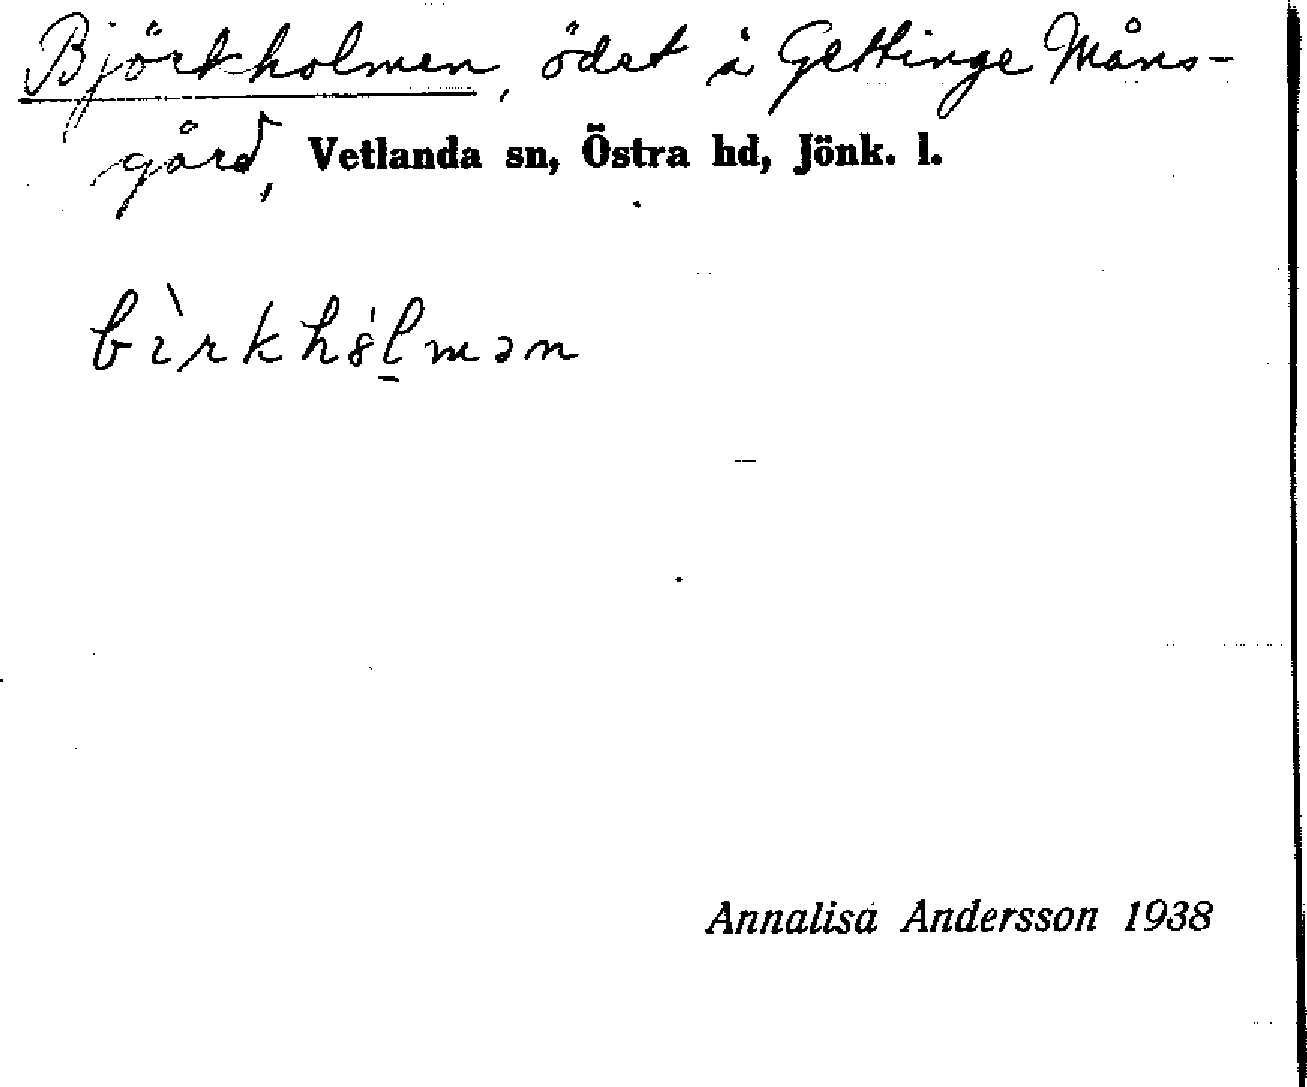 Björkholmen, ödet å Gettinge Måns-
gård, Vetlanda sn, Östra hd, Jönk. l.
bìrkhȯ́lmən
Annalisa Andersson 1938